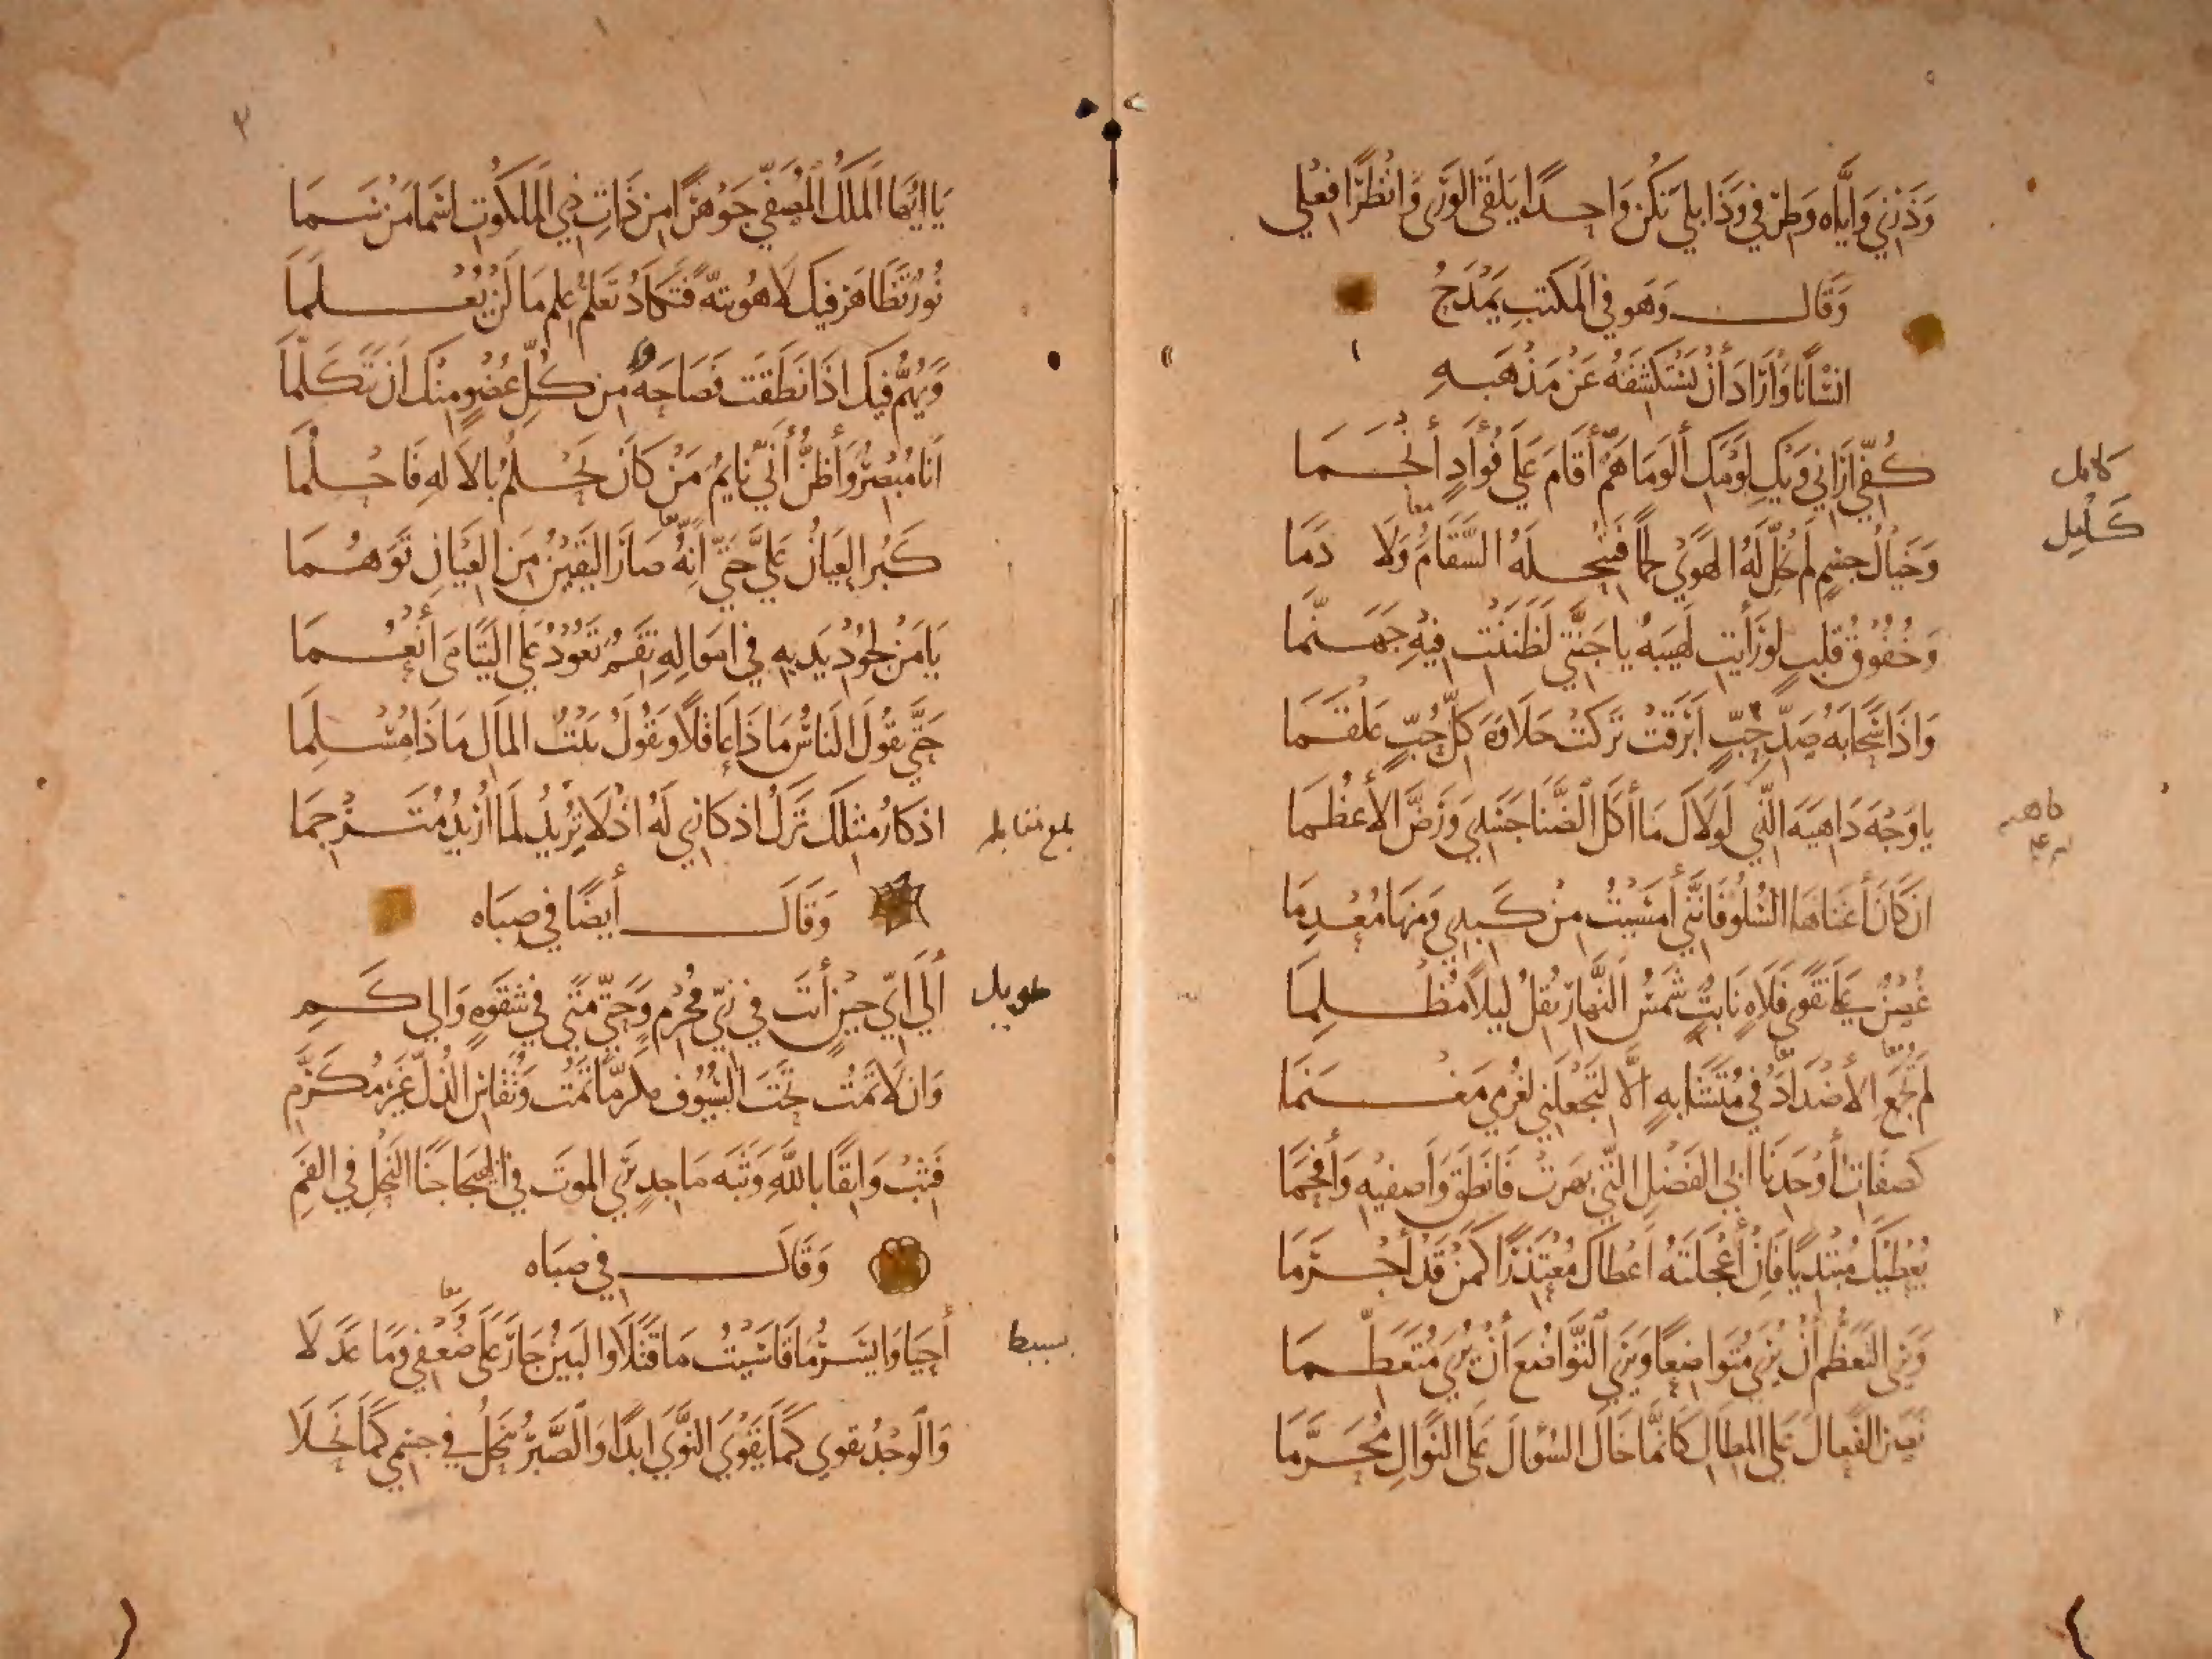 وَذَرْنِي وَإِيَّاهُ وَطِرْفِي وَذَابِلِي نَكُنْ وَاحِدًا يَلْقَى الْوَرَى وَانْظُرًا فِعْلِي
وَقَالَ وَهُوَ فِي الْمَكْتَبِ يَمْدَحُ
انْسَانًا وَأَرَادَ أَنْ يَسْتَكْشِفَهُ عَنْ مَذْهَبِهِ
كُفِّي أَرَانِي وَيْكِ لَوْمَكِ أَلْوَمَا هَمٌّ أَقَامَ عَلَى فُؤَادٍ أَنْجَمَا
كامل
وَخَيَالُ جِسْمٍ لَمْ يُخَلِّ لَهُ الْهَوَى لَحْمًا فَيُنْحِلَهُ السَّقَامُ وَلَا دَمَا
وَخُفُوقُ قَلْبٍ لَوْ رَأَيْتِ لَهِيبَهُ يَا جَنَّتِي لَظَنَنْتِ فِيهِ جَهَنَّمَا
وَاذَا سَحَابَةُ صَدِّ حِبٍّ أَبْرَقَتْ تَرَكَتْ حَلَاوَةَ كُلِّ حُبٍّ عَلْقَمَا
يَا وَجْهَ دَاهِيَةَ الَّتِي لَوْلَاكَ مَا أَكَلَ الضَّنَا جَسَدِي وَرَضَّ الْأَعْظُمَا
انْ كَانَ أَغْنَاهَا السُّلُوُّ فَانَّنِي أَمْسَيْتُ مِنْ كَبِدِي وَمِنْهَا مُعْدِمَا
غُصْنٌ عَلَى نَقَوَيْ فَلَاةٍ نَابِتٌ شَمْسُ النَّهَارِ تُقِلُّ لَيْلًا مُظْلِمَا
لَمْ تُجْمَعِ الْأَضْدَادُ فِي مُتَشَابِهٍ الَّا لِتَجْعَلَنِي لِغُرْمِي مَغْنَمَا
كَصِفَاتِ أَوْحَدِنَا أَبِي الْفَضْلِ الَّتِي بَهَرَتْ فَأَنْطَقَ وَاصِفِيهِ وَأَفْحَمَا
يُعْطِيكَ مُبْتَدِيًا فَانْ أَعْجَلْتَهُ أَعْطَاكَ مُعْتَذِرًا كَمَنْ قَدْ أَجْرَمَا
وَيَرَى التَّعَظُّمَ أَنْ يُرَى مُتَوَاضِعًا وَيَرَى التَّوَاضُعَ أَنْ يُرَى مُتَعَظِّمَا
نَصَرَ الْفَعَالَ عَلَى الْمِطَالِ كَانَّمَا خَالَ السُّؤَالَ عَلَى النَّوَالِ مُحَرَّمَا
٣
يَا ايُّهَا الْمَلَكُ الْمُصَفَّى جَوْهَرًا مِنْ ذَاتِ ذِي الْمَلَكُوتِ اسْمَا مَنْ سَمَا
نُورٌ تَظَاهَرَ فِيكَ لَاهُوتِيُّهُ فَتَكَادُ تَعْلَمُ عِلْمَ مَا لَنْ يُعْلَمَا
وَيَهُمُّ فِيكَ اذَا نَطَقْتَ فَصَاحَةً مِنْ كُلِّ عُضْوٍ مِنْكَ أَنْ يَتَكَلَّمَا
أَنَا مُبْصِرٌ وَأَظُنُّ أَنِّي نَايِمٌ مَنْ كَانَ يَحْلُمُ بِالْالَهِ فَاحْلُمَا
كَبُرَ الْعِيَانُ عَلَيَّ حَتَّى انَّهُ صَارَ الْيَقِينُ مِنَ الْعِيَانِ تَوَهُّمَا
يَا مَنْ لِجُودِ يَدَيْهِ فِي أَمْوَالِهِ نِقَمٌ تَعُودُ عَلَى الْيَتَامَى أَنْعُمَا
حَتَّى يَقُولَ النَّاسُ مَا ذَا عَاقِلًا وَيَقُولَ بَيْتُ الْمَالِ مَا ذَا مُسْلِمَا
اذْكَارُ مِثْلِكَ تَرْكُ اذْكَارِي لَهُ اذْ لَا تُرِيدُ لِمَا أُرِيدُ مُتَرْجِمَا
بلغ مقابلة
وَقَالَ أَيْضًا فِي صِبَاهُ
الَى أَيِّ حِينٍ أَنْتَ فِي زِيِّ مُحْرِمِ وَحَتَّى مَتَى فِي شِقْوَةٍ وَالَى كَمِ
طويل
وَانْ لَا تَمُتْ تَحْتَ السُّيُوفِ مُكَرَّمًا تَمُتْ وَتُقَاسِ الذُّلَّ غَيْرَ مُكَرَّمِ
فَثِبْ وَاثِقًا بِاللَّهِ وَثْبَةَ مَاجِدٍ يَرَى الْمَوْتَ فِي الْهَيْجَا جَنَا النَّحْلِ فِي الْفَمِ
وَقَالَ فِي صِبَاهُ
أَحْيَا وَايْسَرُ مَا قَاسَيْتُ مَا قَتَلَا وَالْبَيْنُ جَارَ عَلَى ضُعْفِي وَمَا عَدَلَا
بسيط
وَالْوَجْدُ يَقْوَى كَمَا يَقْوَى النَّوَى أَبَدًا وَالصَّبْرُ يَنْحَلُ فِي جِسْمِي كَمَا نَحَلَا